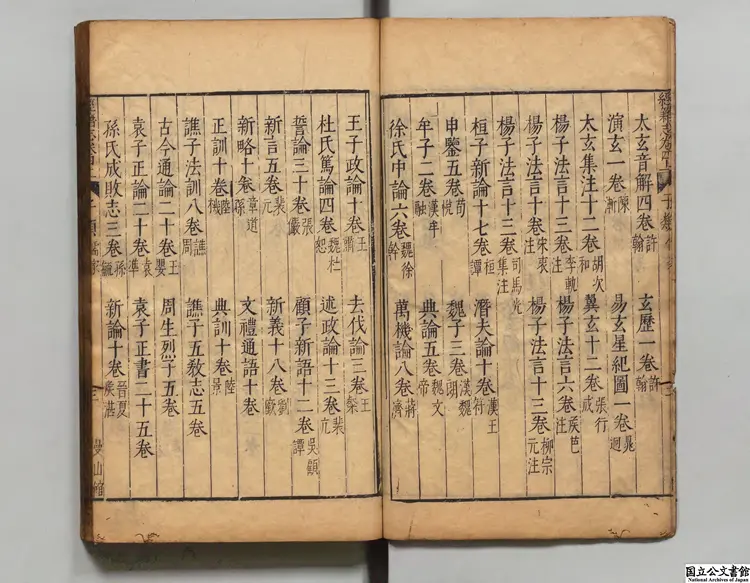 太玄音解四卷許翰 玄歷一卷許翰
演玄一卷陳漸 易玄星紀圖一卷晁迥
太玄集注十二卷胡次和 翼玄十二卷張行成
楊子法言十三卷李軌注 楊子法言六卷侯芭注
楊子法言十卷宋衷注 楊子法言十三卷柳宗元注
楊子法言十三卷司馬光集注
桓子新論十七卷桓譚 潛夫論十卷漢王符
申鑒五卷荀悅 魏子三卷漢魏朗
牟子二卷漢牟融 典論五卷魏文帝
徐氏中論六卷魏徐幹 萬機論八卷蔣濟
王子政論十卷王肅 去伐論三卷王粲
杜氏篤論四卷魏杜恕 述政論十三卷裴亢
誓論三十卷張儼 顧子新語十二卷吳顧譚
新言五卷裴元 新義十八卷劉廞
新略十卷韋道孫 文禮通語十卷
正訓十卷陸機 典訓十卷陸景
譙子法訓八卷譙周 譙子五教志五卷
古今通論二十卷王嬰 周生烈子五卷
袁子正論二十卷袁準 袁子正書二十五卷
孫氏成敗志三卷孫毓 新論十卷晉夏侯湛
曼山館
国立公文書館
National Archives of Japan